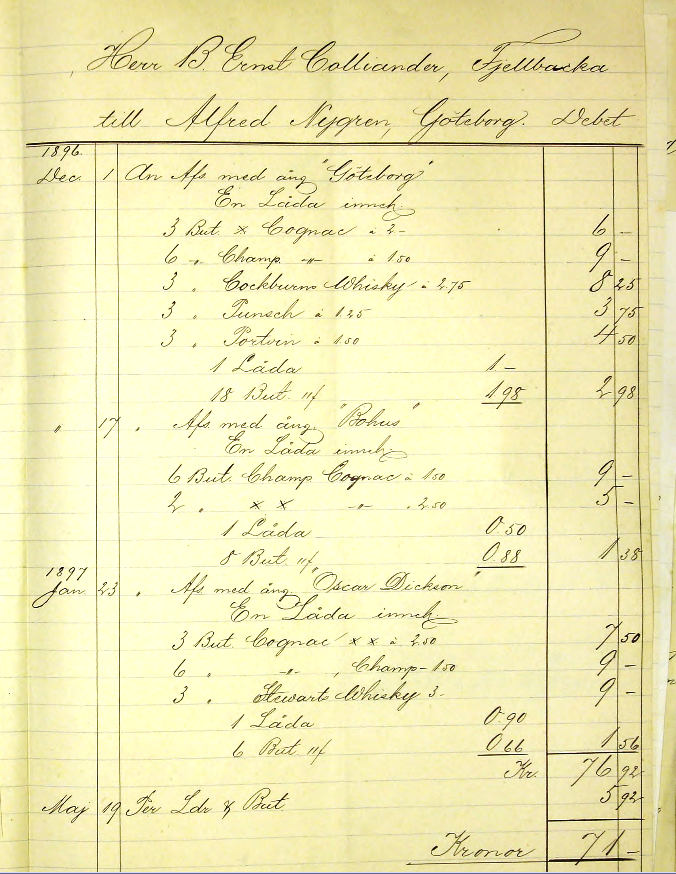 Herr B. Ernst Colliander, Fjellbacka
till Alfred Nygren, Göteborg. Debet
1896
Dec. 1 An Afs. med ång "Göteborg"
En Låda inneh.
3 But. x Cognac à 2- 6 -
6 " Champ -"- à 1 50 9 -
3 " Cockburns Whisky à 2 75 8 25
3 " Punsch à 1 25 3 75
3 " Portvin à 1 50 4 50
1 Låda 1 -
18 But. 11 f 1 98 2 98
" 17 " Afs. med ång. "Bohus"
En Låda inneh.
6 But. Champ Cognac à 1 50 9 -
2 " x x -"- " 2 50 5 -
1 Låda 0.50
8 But. 11 f 0.88 1 38
1897
Jan. 23 " Afs. med ång. "Oscar Dickson"
En Låda inneh.
3 But. Cognac x x à 2 50 7 50
6 " -"- , Champ - 1 50 9 -
3 " Stewarts Whisky 3 - 9 -
1 Låda 0.90
6 But 11 f 0.66 1 56
Kr. 76 92
Maj 19 Per Ldr & But. 5 92
Kronor 71 -